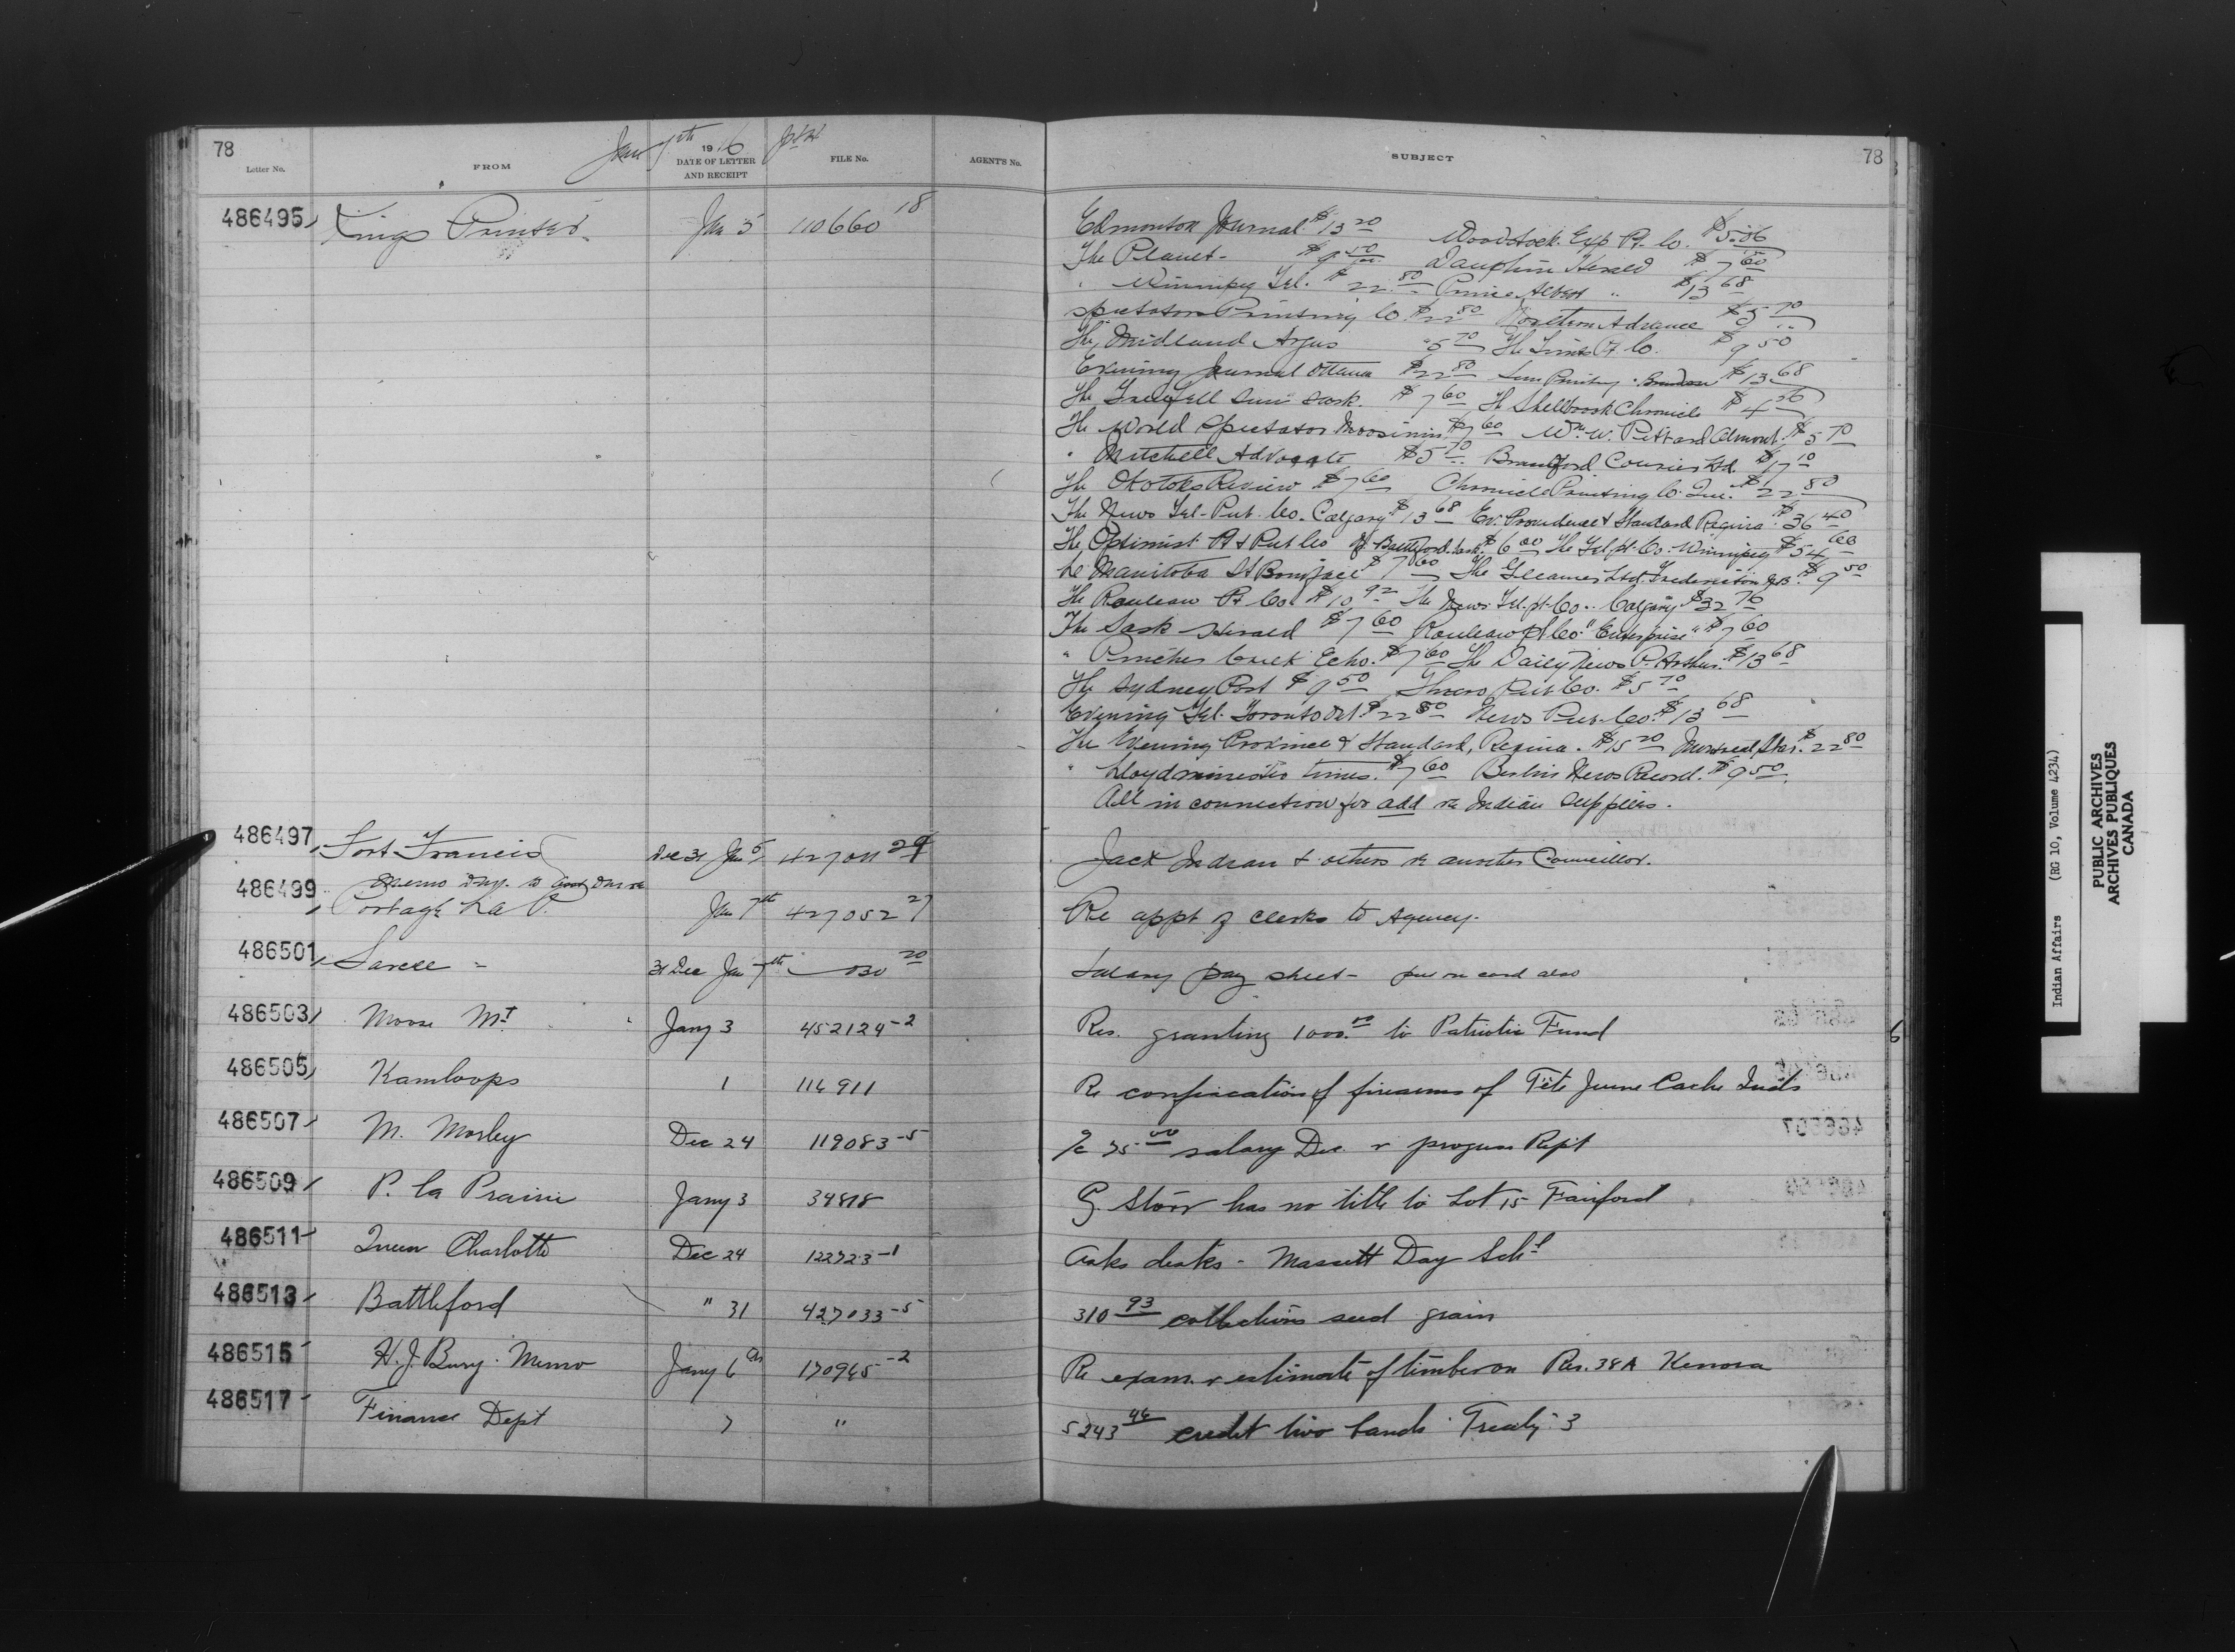 78
Jan 7th 1916
Letter No. FROM DATE OF LETTER AND RECEIPT FILE No. AGENT'S No. SUBJECT 78
486495 Kings Printer Jan 5 110660 18 Edmonton Journal $13 20 Woodstock Exp Pt. Co. $5.06
The Planet - $9 50 Dauphin Herald $7 60
" Winnipeg Tel. $22 80 Prince Albert " $13 68
Spectator Printing Co. $22 80 Advance $5 70
The Midland Argus "5 70 The Times Pt Co. $9 50
Evening Journal Ottawa $22 80 Sun Printing Brandon $13 68
The Grenfell Sun Sask. $7 60 The Shellbrook Chronicle $4 56
The World Spectator Moosimin $7 60 Wm. W. Pittard Almont $5 70
" Mitchell Advocate $5 70 Brantford Courier Ltd. $17 10
The Okotoks Review $7 60 Chronicle Printing Co. Que. $22 80
The News Tel-Pub. Co. Calgary $13 68 Ev. Province & Standard Regina $36 40
The Optimist Pt & Pub Co Battleford Sask. $6 00 The Tel. pt. Co. Winnipeg $54 60
Le Manitoba St Boniface $7 60 The Gleaner Ltd. Fredericton N.B. $9 50
The Rouleau Pt Co. $10 92 The News Tel. pt. Co. Calgary $32 76
The Sask Herald $7 60 Rouleau Pt Co. "Enterprise" $7 60
" Pincher Creek Echo. $7 60 The Daily News P. Arthur. $13 68
The Sydney Post $9 50 Pub Co. $5 70
Evening Tel. Toronto Ont. $22 80 News Pub. Co. $13 68
The Evening Province & Standard, Regina. $15 20 Montreal Star. $22 80
" Lloydminster Times. $7 60 Berlin News Record. $9 50
All in connection for add re Indian Supplies.
486497 Fort Francis Dec 31 Jan 5 427011 29 Jack Indian & others re Councillor.
486499 Portage La P. Jan 7th 427052 27 Re appt of clerks to Agency.
486501 Sarcee - 31 Dec Jan 7th 030 20 Salary pay sheet - put on card also
486503 Moose Mt Jany 3 452124-2 Res. granting 1000.00 to Patriotic Fund
486505 Kamloops 1 116911 Re confiscation of firearms of Tête Jeune Cache Inds
486507 M. Morley Dec 24 119083-5 a/c 75 00 salary Dec. & progress Rept
486509 P. la Prairie Jany 3 34818 G. Storr has no title to Lot 15 Fairford
486511 Queen Charlotte Dec 24 122723-1 Asks desks - Massett Day Schl
486513 Battleford " 31 427033-5 310 93 collections seed grain
486515 H. J. Bury. Memo Jany 6 170965-2 Re exam. & estimate of timber on Res. 38A Kenora
486517 Finance Dept 7 " 5243 44 credit two bands Treaty 3
Indian Affairs (RG 10, Volume 4234)
PUBLIC ARCHIVES
ARCHIVES PUBLIQUES
CANADA